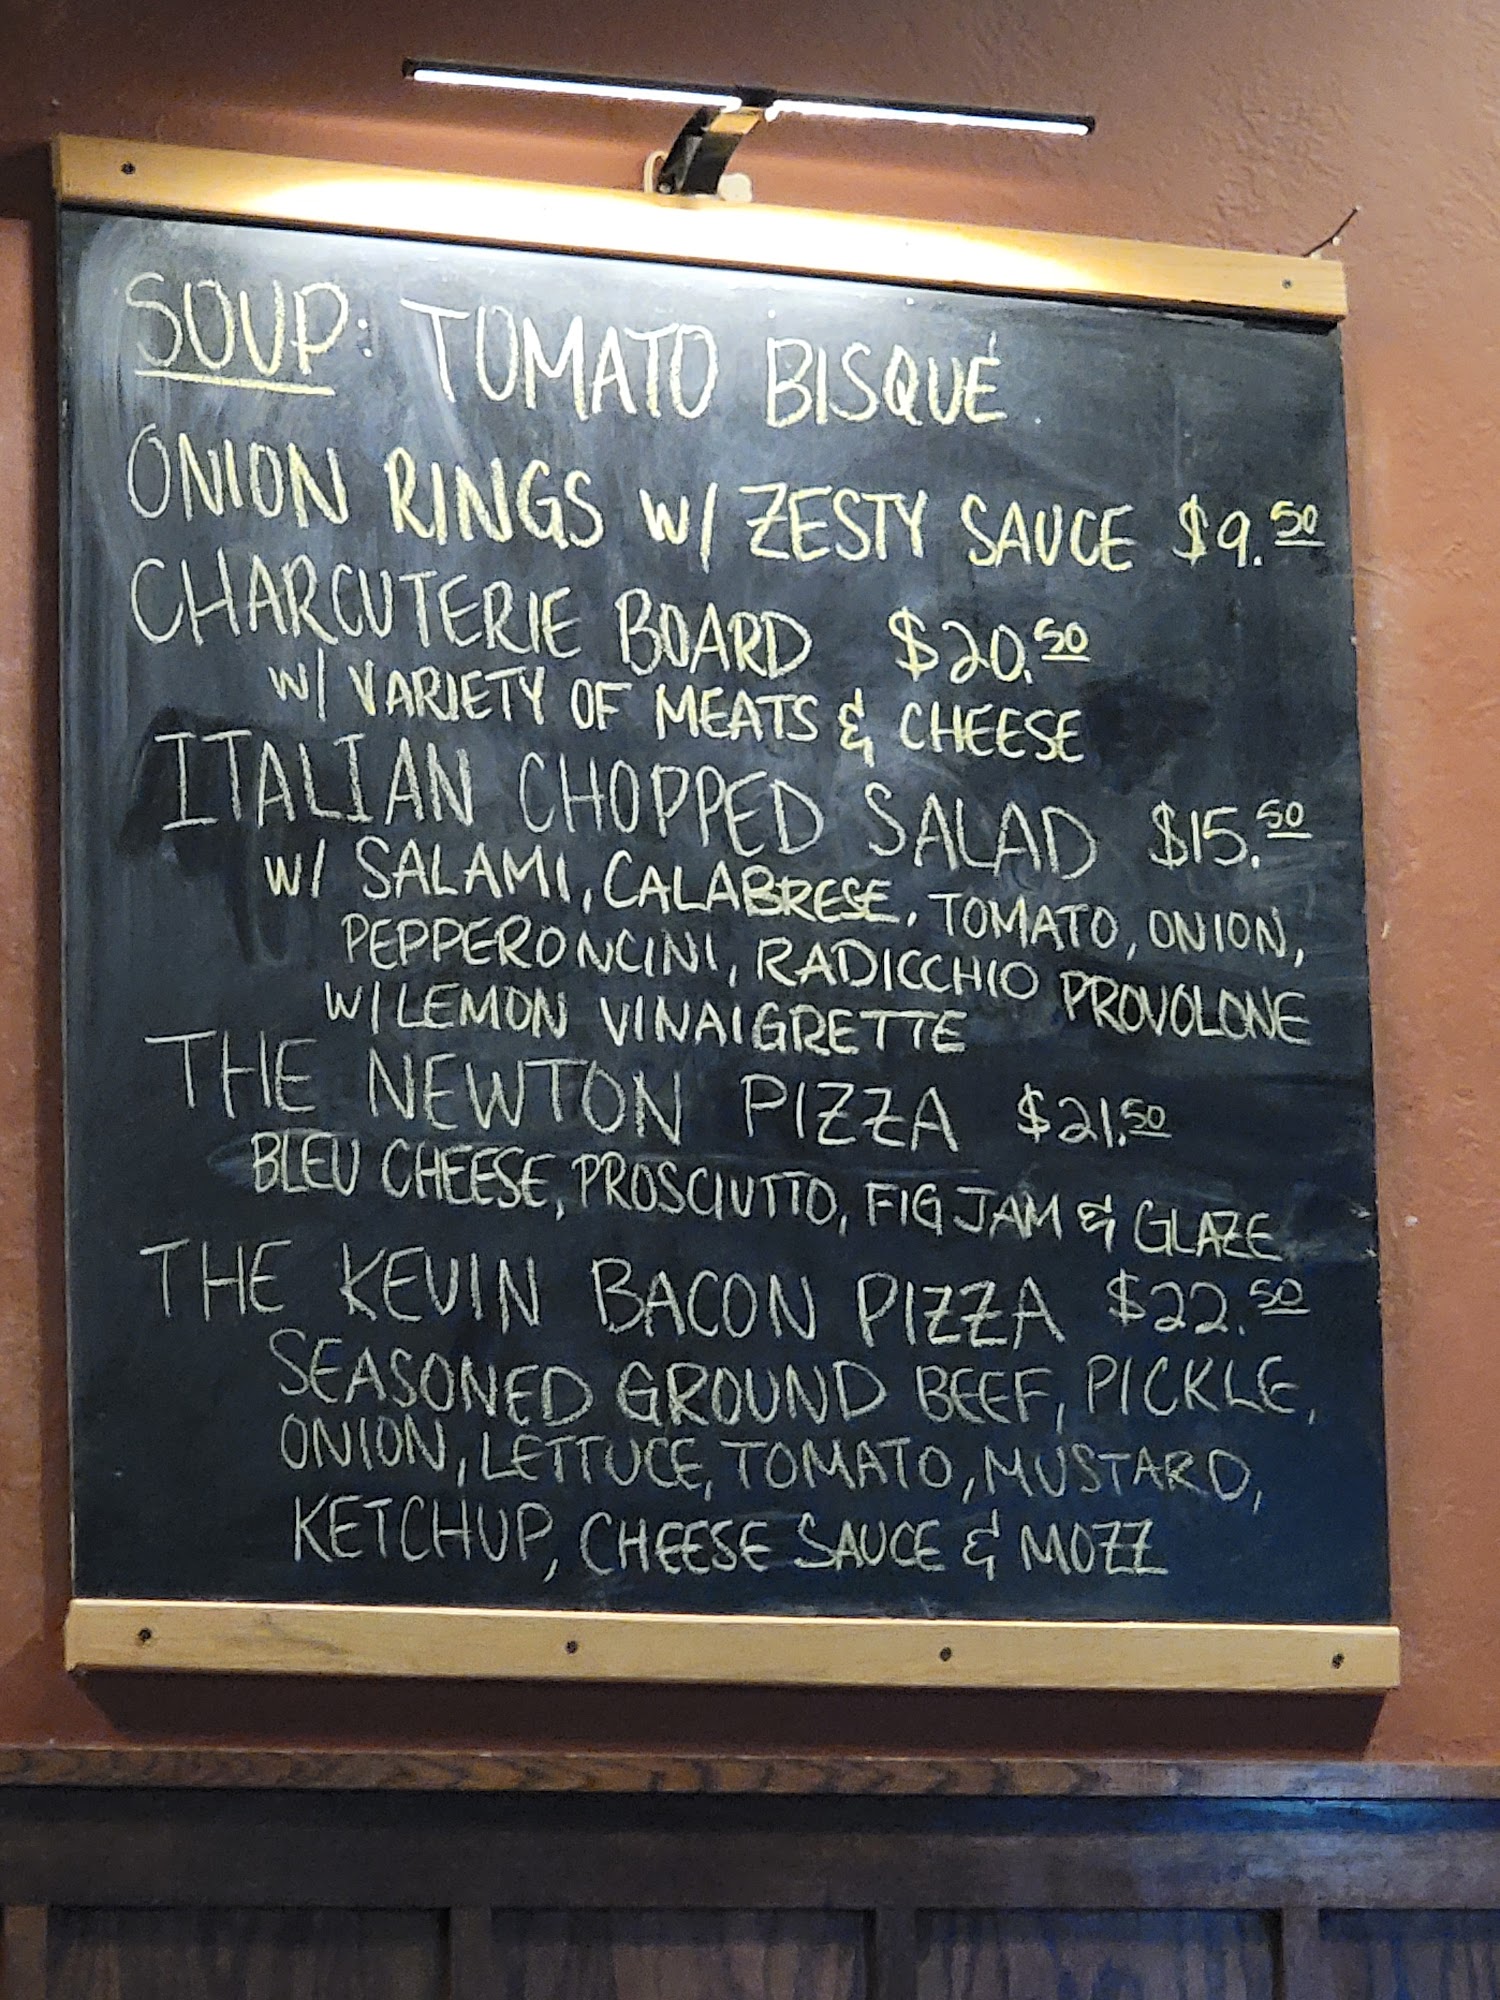 SOUP: TOMATO BISQUE
ONION RINGS W/ ZESTY SAUCE $9.50
CHARCUTERIE BOARD $20.50
W/ VARIETY OF MEATS & CHEESE
ITALIAN CHOPPED SALAD $15.50
W/ SALAMI, CALABRESE, TOMATO, ONION,
PEPPERONCINI, RADICCHIO PROVOLONE
W/ LEMON VINAIGRETTE
THE NEWTON PIZZA $21.50
BLEU CHEESE, PROSCIUTTO, FIG JAM & GLAZE
THE KEVIN BACON PIZZA $22.50
SEASONED GROUND BEEF, PICKLE,
ONION, LETTUCE, TOMATO, MUSTARD,
KETCHUP, CHEESE SAUCE & MOZZ